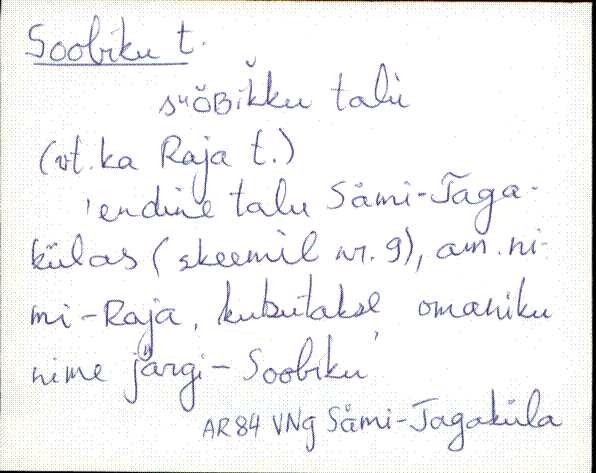 Soobiku t.
sᵘŏʙik̆ku talù
(vt. ka Raja t.)
'endine talu Sämi-Taga-
külas (skeemil nr. 9), am. ni-
mi - Raja, kutsutakse omaniku
nime järgi - Soobiku'
AR84 VNg Sämi-Tagaküla